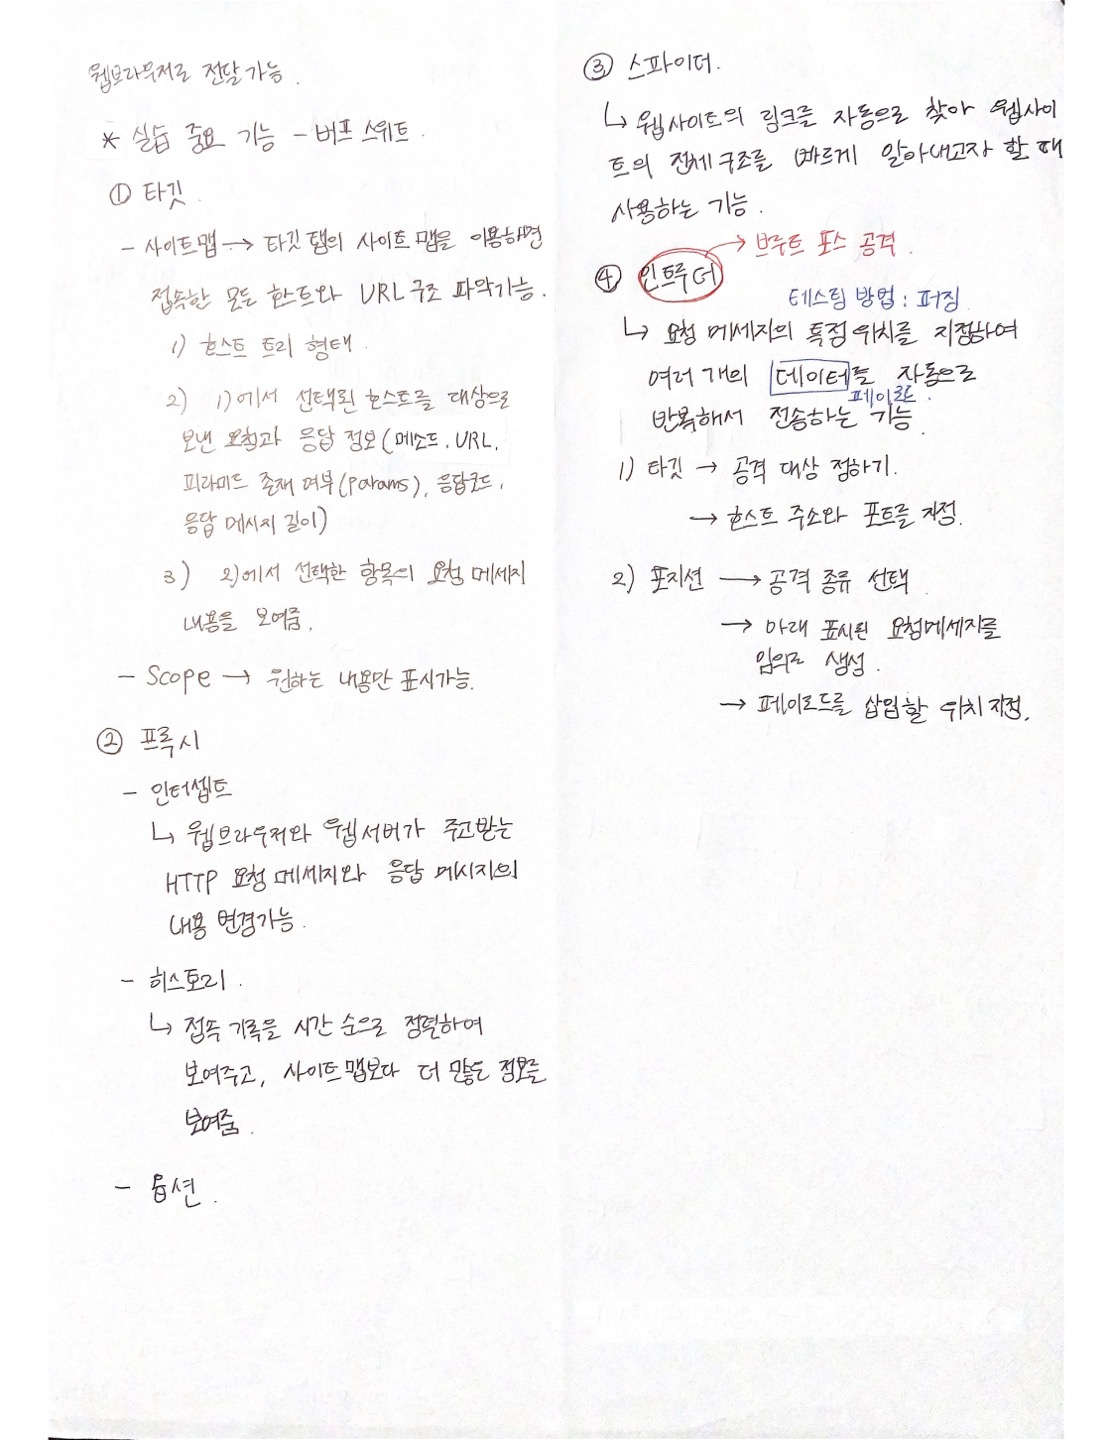 웹브라우저로 전달 가능.
* 실습 중요 기능 - 버프스위트.
① 타깃.
- 사이트맵 → 타깃 탭의 사이트 맵을 이용하면
접속한 모든 호스트와 URL 구조 파악가능.
1) 호스트 트리 형태.
2) 1)에서 선택된 호스트를 대상으로
보낸 요청과 응답 정보(메소드, URL,
피라미드 존재 여부(params), 응답코드,
응답 메시지 길이)
3) 2)에서 선택한 항목의 요청 메세지
내용을 보여줌.
- Scope → 원하는 내용만 표시가능.
② 프록시
- 인터셉트
↳ 웹브라우저와 웹서버가 주고받는
HTTP 요청 메세지와 응답 메시지의
내용 변경가능.
- 히스토리.
↳ 접속 기록을 시간 순으로 정렬하여
보여주고, 사이트맵보다 더 많은 정보를
보여줌.
- 옵션.
③ 스파이더.
↳ 웹사이트의 링크를 자동으로 찾아 웹사이
트의 전체 구조를 빠르게 알아내고자 할 때
사용하는 기능.
④ 인트루더 → 브루트 포스 공격.
테스팅 방법 : 퍼징
↳ 요청 메세지의 특정 위치를 지정하여
여러 개의 데이터를 자동으로
페이로드.
반복해서 전송하는 기능
1) 타깃 → 공격 대상 정하기.
→ 호스트 주소와 포트를 지정.
2) 포지션 → 공격 종류 선택
→ 아래 표시된 요청메세지를
임의로 생성.
→ 페이로드를 삽입할 위치 지정.